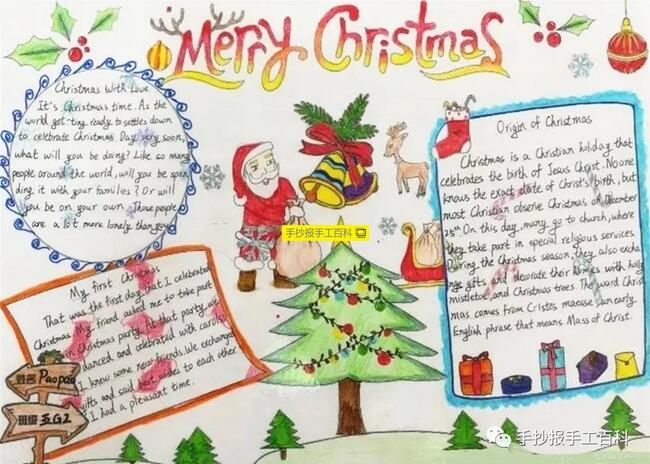 Merry Christmas
Christmas With Love
It's Christmas time. As the
world got-ting ready to settles down
to celebrate Christmas Day very soon,
what will you be doing? Like so many
people around the world, will you be spen
ding it with your families? Or will
you be on your own. Those people
are a lot more lonely than you
My first Christmas
That was the first day that I celebrated
Christmas. My friend asked me to take part
in Christmas party. At that party, we
danced, and celebrated with carols.
I knew some new friends. We exchanged
gifts and said best wishes to each other.
I had a pleasant time.
姓名 Paopao
班级 五G2
手抄报手工百科
Origin of Christmas
Christmas is a Christian holiday that
celebrates the birth of Jesus Christ. No one
knows the exact date of Christ's birth, but
most Christian observe Christmas on December
25th On this day, many go to church, where
they take part in special religious services.
During the Christmas season, they also excha
nge gifts and decorate their homes with holly
mistletoe, and Christmas trees. The word Christ
mas comes from Cristes maesse, an early
English phrase that means Mass of Christ.
手抄报手工百科